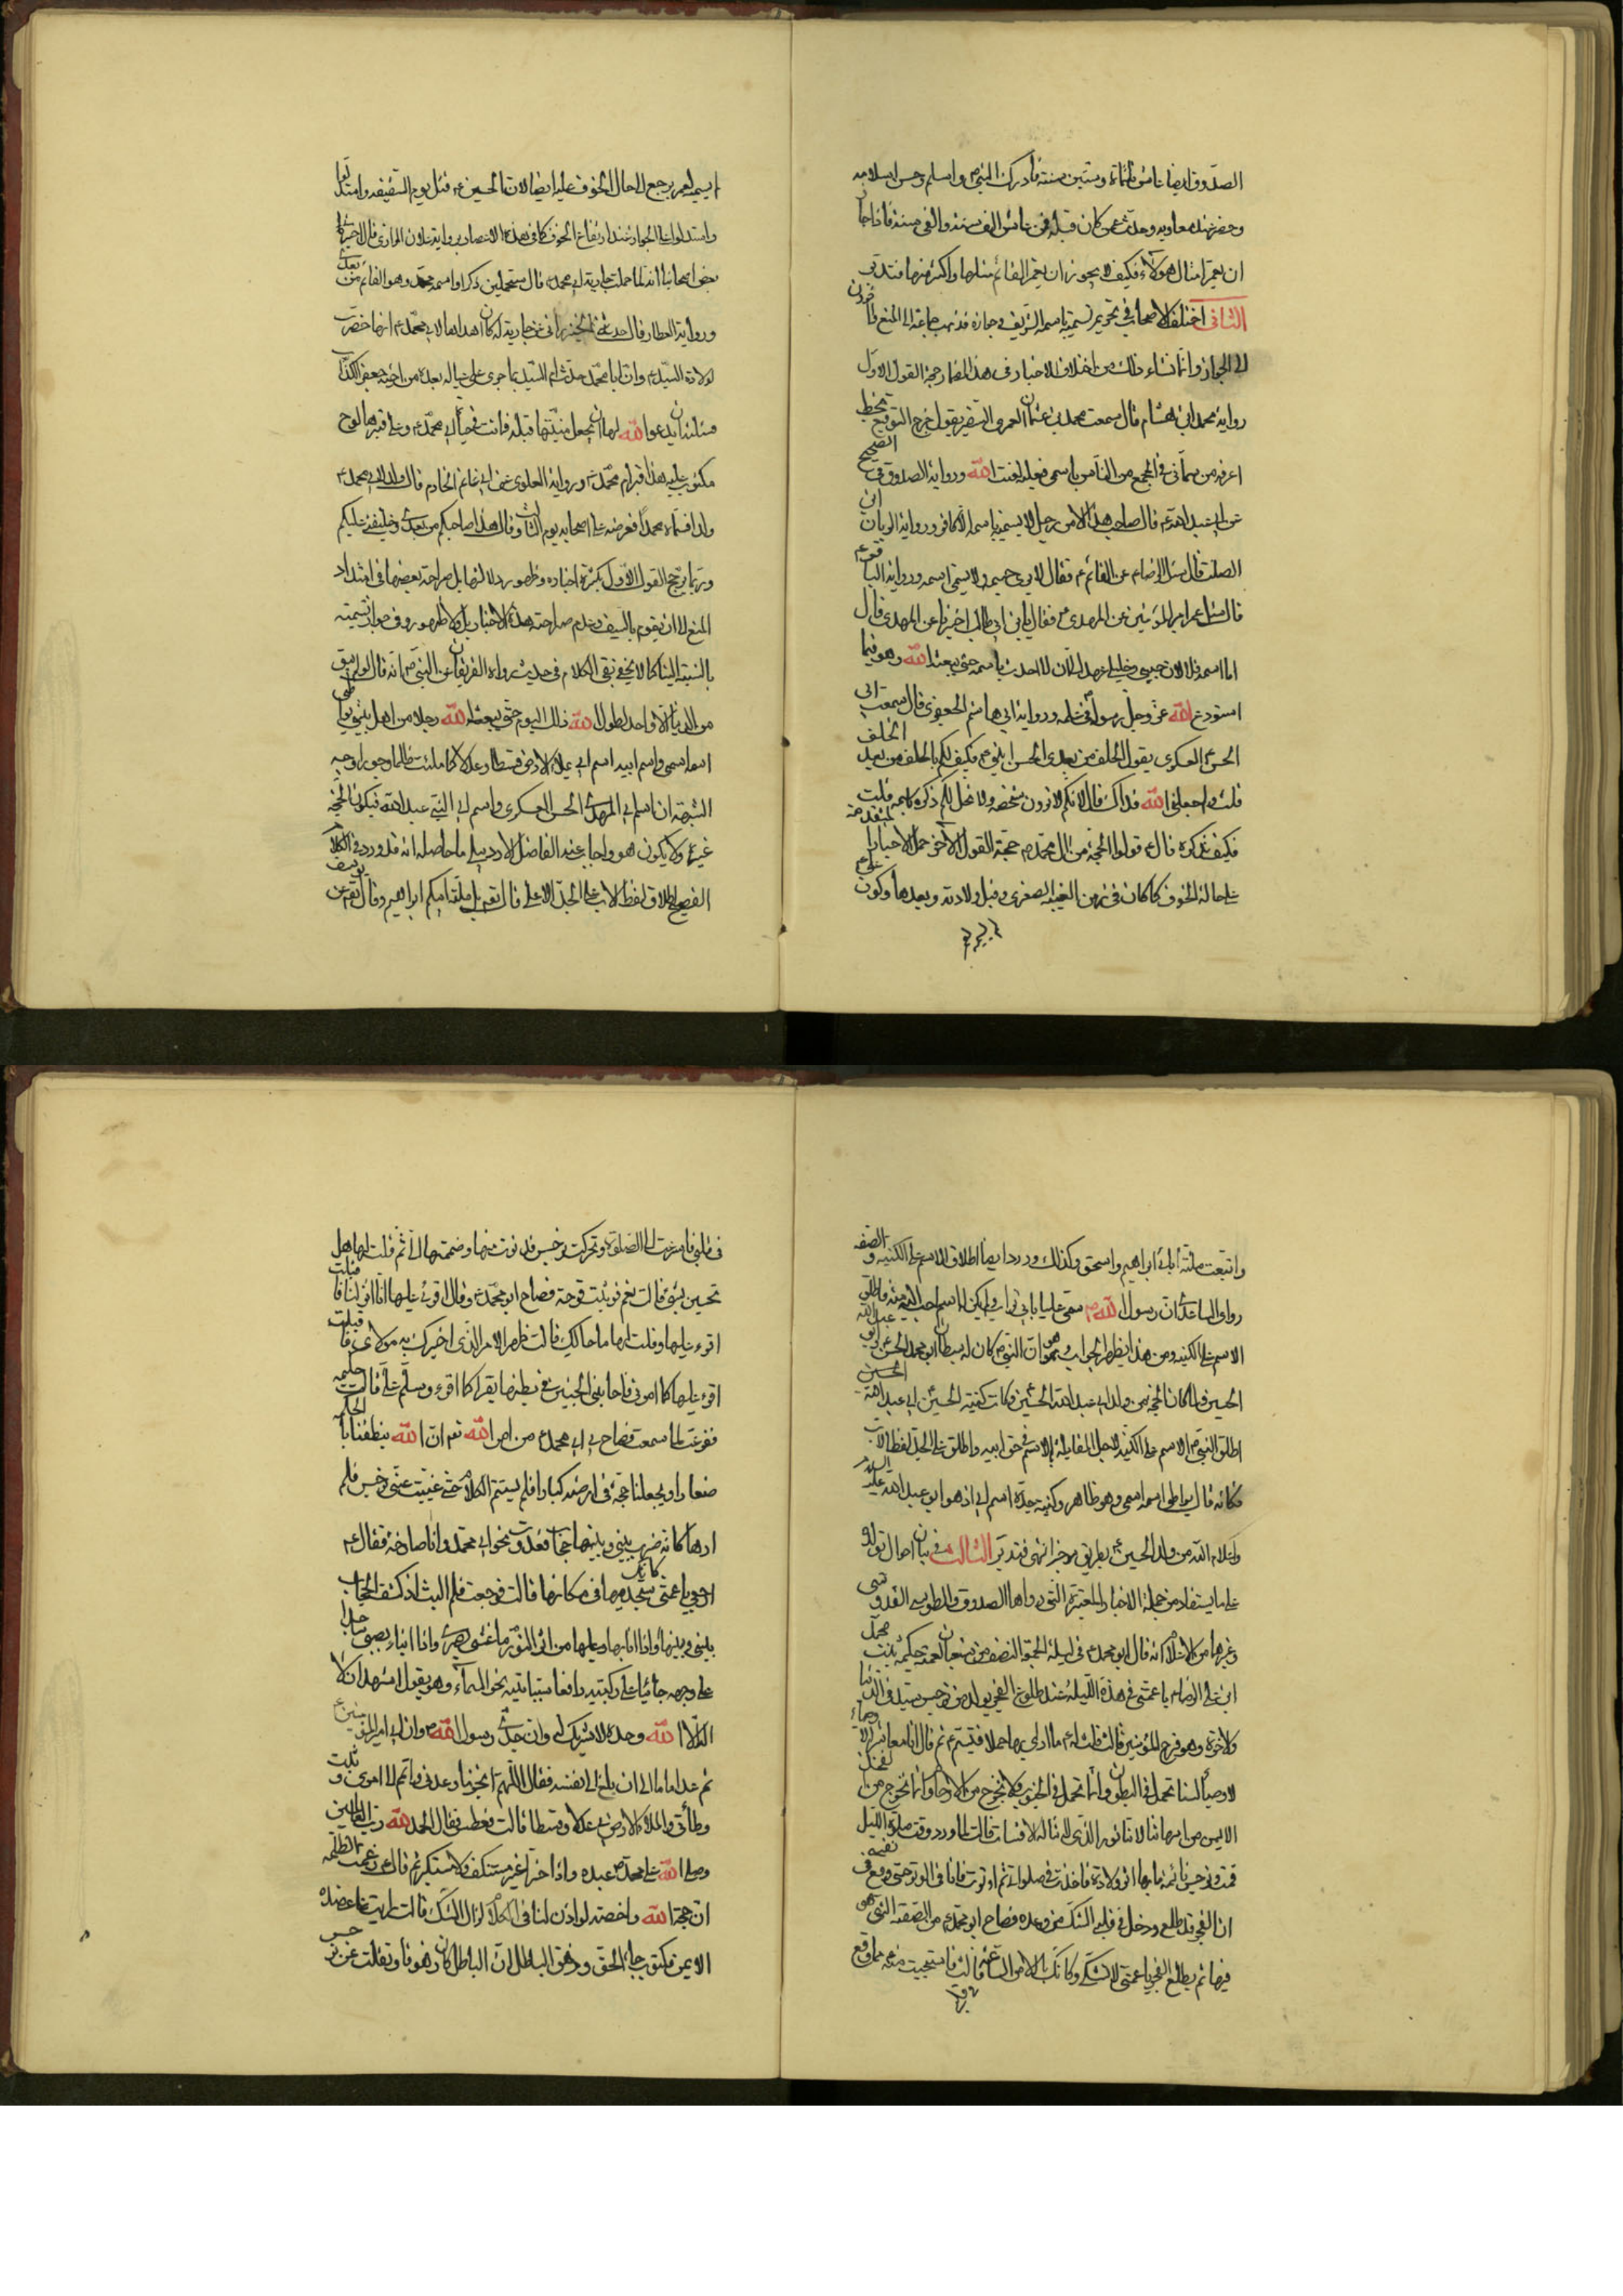 الصدوق ايضا عاش ثلثمائة وستين سنة فادرك النبي ص واسلم وحسن اسلامه
وحضر عند معاويه وحدث عمن كان قبله فمن عاش الف سنة والفي سنة فاذا جاز
ان يعمر امثال هؤلاء فكيف لا يجوز ان يعمر القائم مثلها واكثر منها فتدبر
الثانى اختلف الاصحاب في تحريم تسميته باسمه الشريف وجوازه فذهب جماعة الى المنع واخرون
الى الجواز وانما نشاء ذلك من اختلاف الاخبار في هذا المضمار حجة القول الاول
رواية محمد ابن همام قال سمعت محمد بن عثمان العمرى يقول خرج التوقيع بخط
اعرفه من سماني في المجمع من الناس باسمى فعليه لعنت الله ورواية الصدوق في الصحيح
عن ابى عبد الله ع قال صاحب هذا الامر رجل لا يسميه باسمه الا كافر ورواية الريان ابن
الصلت قال سئل الرضا ع عن القائم ع فقال لا يرى جسمه ولا يسمى اسمه ورواية الباقر ع
قال سئل عمر امير المؤمنين عن المهدى ع فقال يابن ابى طالب اخبرنى عن المهدى قال
اما اسمه فلا لان حبيبى وخليلى عهد الى ان لا احدث باسمه حتى يبعثه الله وهو فيما
استودع الله عز وجل رسوله في علمه ورواية ابى هاشم الجعفرى قال سمعت ابى
الحسن العسكرى يقول الخلف من بعدى الحسن ابنى ع فكيف لكم بالخلف من بعد الخلف
قلت ولم جعلنى الله فداك قال لانكم لا ترون شخصه ولا يحل لكم ذكره باسمه قلت
فكيف نذكره قال ع قولوا الحجة من آل محمد ص حجة القول الآخر حمل الاخبار المتقدمة
على حالة الخوف كما كان في زمن الغيبة الصغرى وقبل ولادته وبعدها وكون
واستدلوا على الجواز عند ارتفاع الخوف كما في هذه الاعصار برواية علان الرازى قال اخبرنى
بعض اصحابنا انه لما حملت جارية ابى محمد ع قال ستحملين ذكرا واسمه محمد وهو القائم من بعدى
ورواية العطار قال حدثنى الخيزرانى عن جارية له كان اهداها لابى محمد ع انها حضرت
لولادة السيد ع وان ابا محمد حدث ام السيد بما جرى على عياله بعده من اخيه جعفر الكذاب
فسئلته ان يدعو الله لها ان يجعل منيتها قبله فماتت في حيوة ابى محمد ع وعلى قبرها لوح
مكتوب عليه هذا قبر ام محمد ع ورواية العلوى عن ابى غانم الخادم قال ولد لابى محمد ع
ولد فسماه محمدا فعرضه على اصحابه يوم الثالث وقال هذا صاحبكم من بعدى وخليفتى عليكم
وربما يرجح القول الاول بكثرة اخباره وظهور دلالتها بل صراحة بعضها في امتداد
المنع الى ان يقوم بالسيف وعدم صراحة هذه الاخبار بل ولا ظهورها في جواز تسميته
بالنسبة الينا كما لا يخفى بقى الكلام في حديث رواه الفريقان عن النبى ص انه قال لو لم يبق
من الدنيا الا يوم واحد لطول الله ذلك اليوم حتى يبعث الله رجلا من اهل بيتى يواطى
اسمه اسمى واسم ابيه اسم ابى يملاء الارض قسطا وعدلا كما ملئت ظلما وجورا وجه
الشبهة ان اسم ابى المهدى الحسن العسكرى واسم ابى النبى عبد الله فيكون الحجة
غيره ولا يكون هو واجاب عنه الفاضل الاردبيلى ما حاصله انه قد ورد في الكلام
الفصيح اطلاق لفظ الاب على الجد الاعلى قال تعالى ملة ابيكم ابراهيم وقال تعالى عن يوسف
واتبعت ملة آبائى ابراهيم واسحق وكذلك ورد ايضا اطلاق الاسم على الكنية والصفة
روى الساعدى ان رسول الله ص سمى عليا بابى تراب ولم يكن له اسم احب اليه منه فاطلق
الاسم على الكنية ومن هذا يظهر الجواب وهو ان النبى ص كان له سبطان ابو محمد الحسن وابو عبد الله
الحسين ولما كان الحجة من ولد ابى عبد الله الحسين وكانت كنية الحسين ابى عبد الله
اطلق النبى ص الاسم على الكنية لاجل المقابلة بالاسم في حق ابيه واطلق على الجد لفظ الاب
فكانه قال يواطى اسمه اسمى وهو ظاهر وكنية جده اسم ابى اذ هو ابو عبد الله عليه السلام
واعلام انه من ولد الحسين ع بطريق موجز انتهى فتدبر الثالث في بيان احوال تولده
على ما يستفاد من جملة الاخبار المعتبرة التى رواها الصدوق والطوسى القدوسى
وغيرها من الاعلام انه قال ابو محمد ع في ليلة الجمعة النصف من شعبان لعمته حكيمة بنت محمد
ابن على الرضا ع يا عمتى في هذه الليلة عند طلوع الفجر يولد من نرجس سيد في الدنيا
والاخرة وهو فرج المؤمنين قالت قلت له ع ما ارى بها حملا فتبسم ع ثم قال انا معاشر الاوصياء
لسنا نحمل في البطون وانما نحمل في الجنوب ولا نخرج من الارحام وانما نخرج من الفخذ
الايمن من امهاتنا لاننا نور الذى لا تناله الدناسات قالت لما ورد وقت صلوة الليل
قمت ونرجس نائمة ما بها اثر ولادة فاخذت في صلواتى ثم اوترت فانا في الوتر حتى وقع في نفسى
ان الفجر قد طلع ودخل في قلبى الشك من وعده فصاح ابو محمد ع من الصفة التى هو
فيها لم يطلع الفجر يا عمتى لا تشكى وكانك بالامر الساعة قالت فاستحييت منه مما وقع
في قلبى فاسرعت الى الصلوة وتحركت نرجس فدنوت منها وضممتها الى ثم قلت لها هل
تحسين بشىء قالت نعم
اقرء عليها وقلت لها ما حالك قالت ظهر الامر الذى اخبرك به مولاى فاقبلت
اقرء عليها كما امرنى فاجابنى الجنين في بطنها يقرء كما اقرء وسلم على قالت حكيمه
ففزعت لما سمعت فصاح بى ابى محمد ع من امر الله تعالى ان الله ينطقنا بالحكم
صغارا ويجعلنا حجة في ارضه كبارا فلم يستتم الكلام حتى غيبت عنى نرجس فلم
ارها كانه ضرب بينى وبينها حجاب فعدوت نحو ابى محمد وانا صارخة فقال ع
ارجعى يا عمتى ستجديها في مكانها قالت فرجعت فلم البث اذ كشف الحجاب
بينى وبينها واذا انا بها وعليها من اثر النور ما غشى بصرى واذا انا بصبى ساجدا
على وجهه جاثيا على ركبتيه رافعا سبابتيه نحو السماء وهو يقول اشهد ان لا
اله الا الله وحده لا شريك له وان جدى رسول الله ص وان ابى امير المؤمنين ع
ثم عد اماما الى ان بلغ الى نفسه فقال اللهم انجز لى وعدنى واتمم لى امرى وثبت
وطأتى واملاء الارض بى عدلا وقسطا قالت فعطس فقال الحمد لله رب العالمين
وصلى الله على محمد ص عبده غير مستنكف ولا مستكبر ثم قال ع زعمت الظلمة
ان حجة الله داحضة لو اذن لنا في الكلام لزال الشك قالت رايت على عضده
الايمن مكتوب جاء الحق وزهق الباطل ان الباطل كان زهوقا